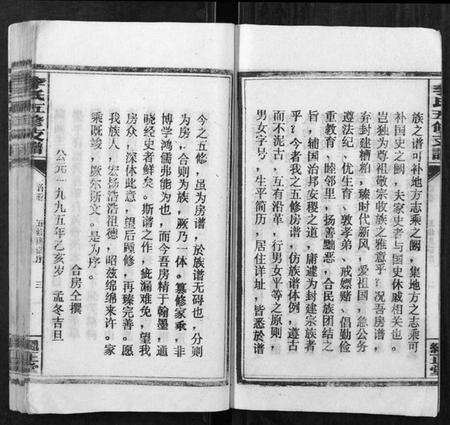 族之谱可补地方志乘之阙，集地方之志乘可
补国史之阙，夫家史者与国史休戚相关也。
岂独为尊祖敬宗收族之雅意乎？况吾房谱，
弃封建糟粕，臻时代新风，爱祖国，急公务
遵法纪、优生育、敦孝弟、戒嫖赌、倡勤俭
重教育、睦邻里，扬善黜恶，合民族团结之
旨，辅国治邦安稷之道，庸遽为封建宗族者
也？今者我之五修房谱，仿族谱体例，遵古
而不泥古，有沿革，行男女平等之原则，
男女字号，生平简历，居住详址，皆悉於谱
今之五修，虽为房谱，於族谱无碍也，分则
为房，合则为族，厥乃一体。纂修家乘，非
博学鸿儒弗能为也，而今吾房精于翰墨，通
晓经史者鲜矣。斯谱之作，疵漏难免，望我
房众，深体此意，望后顾修，再臻完善。愿
我族人，宏扬浩浩祖德，昭兹绵绵来许。家
乘既竣，厥尔斯文。是为序。
合房仝撰
公元一九九五年乙亥岁 孟冬吉旦
李氏五修支谱
三